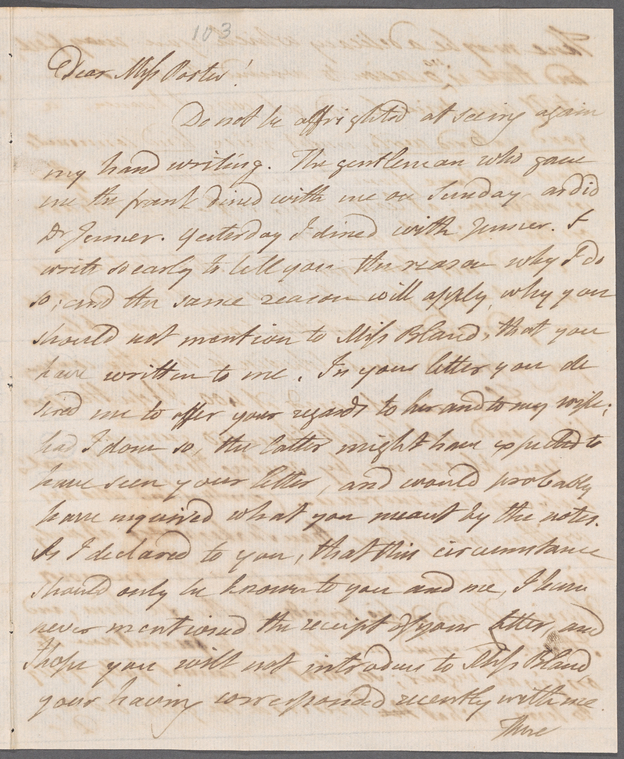 103
Dear Miss Porter!
Do not be affrighted at seeing again
my hand writing. The gentleman who gave
me the frank dined with me on Sunday as did
Dr Jenner. Yesterday I dined with Jenner. I
write so early to tell you the reason why I do
so; and the same reason will apply, why you
should not mention to Miss Bland, that you
have written to me. In your letter you de
sired me to offer your regards to her and to my wife;
had I done so, the latter might have expected to
have seen your letter, and would probably
have inquired what you meant by the notes.
As I declared to you, that this circumstance
should only be known to you and me, I have
never mentioned the receipt of your letter, and
I hope you will not introduce to Miss Bland,
your having corresponded recently with me
There